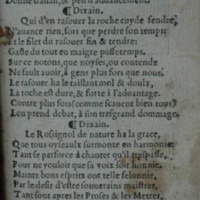 Donne trauail, & peu d'auancement
¶ Dixain.
Qui d'vn rasouer la roche cuyde fendre,
N'auance rien, fors que perdre son temps
et le filet du rasouer fin & tendre:
Gaste du tout en maigre passetemps.
Sur ce notons, que noyses, ou contends
Ne fault auoir, à gens plus fors que nous.
Le rasouer ha le taillant mol & doulx,
La roche est dure, & forte à l'aduantage.
Contre plus fors (comme sçauent bien tous)
L'en prend debat, à son tresgrand dommage.
¶ Dixain.
Le Rossignol de nature ha la grace,
Que tous oyseaulx surmonte en harmonie:
Tant se parforce à chanter qu'il trespasse,
Tout ne vouloit que sa voix soit
Maintz bons esprits ont telle felonnie,
Par le desir d'estre souuerains maistres,
Tant sont apres les Proses & les Metres,